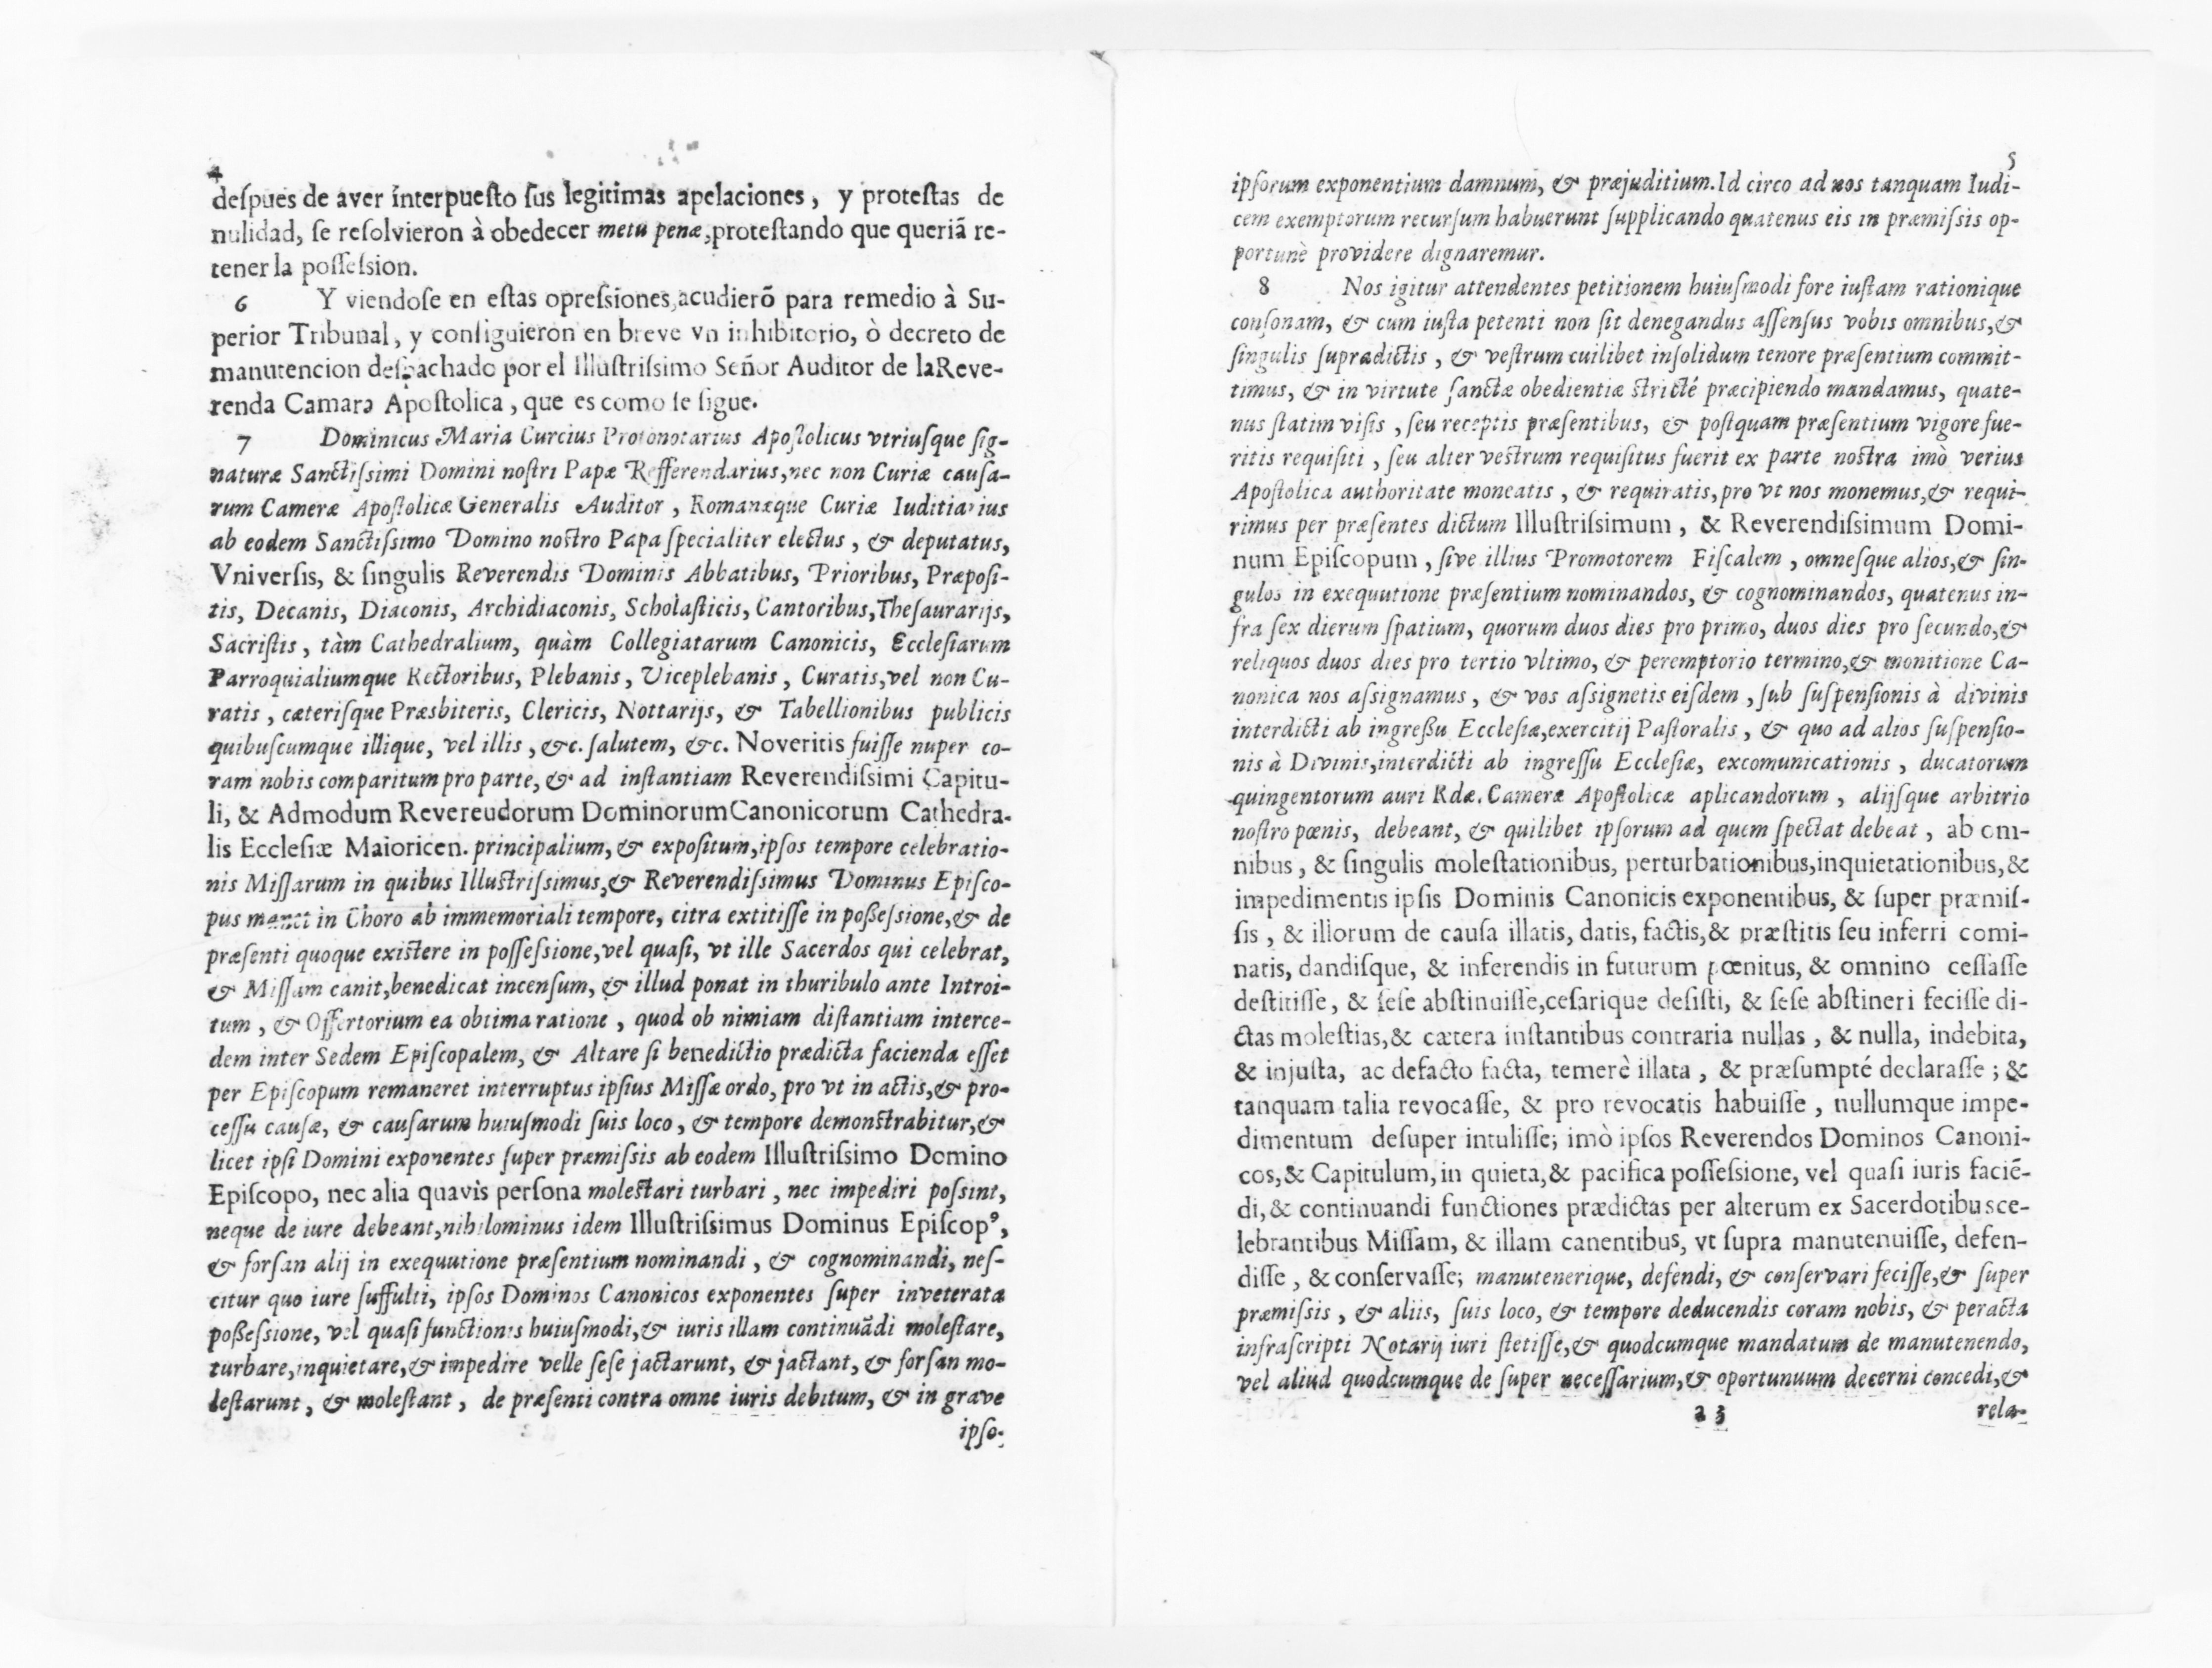 4
despues de aver interpuesto sus legitimas apelaciones, y protestas de
nulidad, se resolvieron à obedecer metu penæ, protestando que queriã re-
tener la possession.
6 Y viendose en estas opressiones, acudierõ para remedio à Su-
perior Tribunal, y consiguieron en breve vn inhibitorio, ò decreto de
manutencion despachado por el Illustrissimo Señor Auditor de laReve-
renda Camara Apostolica, que es como se sigue.
7 Dominicus Maria Curcius Protonotarius Apostolicus vtriusque sig-
naturæ Sanctissimi Domini nostri Papæ Refferendarius, nec non Curiæ causa-
rum Cameræ Apostolicæ Generalis Auditor, Romanæque Curiæ Iuditiarius
ab eodem Sanctissimo Domino nostro Papa specialiter electus, & deputatus,
Vniversis, & singulis Reverendis Dominis Abbatibus, Prioribus, Præposi-
tis, Decanis, Diaconis, Archidiaconis, Scholasticis, Cantoribus, Thesaurarijs,
Sacristis, tàm Cathedralium, quàm Collegiatarum Canonicis, Ecclesiarum
Parroquialiumque Rectoribus, Plebanis, Viceplebanis, Curatis, vel non Cu-
ratis, cæterisque Præsbiteris, Clericis, Nottarijs, & Tabellionibus publicis
quibuscumque illique, vel illis, &c. salutem, &c. Noveritis fuisse nuper co-
ram nobis comparitum pro parte, & ad instantiam Reverendissimi Capitu-
li, & Admodum Revereudorum DominorumCanonicorum Cathedra-
lis Ecclesiæ Maioricen. principalium, & expositum, ipsos tempore celebratio-
nis Missarum in quibus Illustrissimus, & Reverendissimus Dominus Episco-
pus manet in Choro ab immemoriali tempore, citra extitisse in possessione, & de
præsenti quoque existere in possessione, vel quasi, vt ille Sacerdos qui celebrat,
& Missam canit, benedicat incensum, & illud ponat in thuribulo ante Introi-
tum, & Offertorium ea obtima ratione, quod ob nimiam distantiam interce-
dem inter Sedem Episcopalem, & Altare si benedictio prædicta facienda esset
per Episcopum remaneret interruptus ipsius Missæ ordo, pro vt in actis, & pro-
cessu causæ, & causarum huiusmodi suis loco, & tempore demonstrabitur, &
licet ipsi Domini exponentes super præmissis ab eodem Illustrissimo Domino
Episcopo, nec alia quavis persona molestari turbari, nec impediri possint,
neque de iure debeant, nihilominus idem Illustrissimus Dominus Episcopꝰ,
& forsan alij in exequutione præsentium nominandi, & cognominandi, nes-
citur quo iure suffulti, ipsos Dominos Canonicos exponentes super inveterata
possessione, vel quasi functionis huiusmodi, & iuris illam continuãdi molestare,
turbare, inquietare, & impedire velle sese jactarunt, & jactant, & forsan mo-
lestarunt, & molestant, de præsenti contra omne iuris debitum, & in grave
ipso-
5
ipsorum exponentium damnum, & præjuditium. Id circo ad nos tanquam Iudi-
cem exemptorum recursum habuerunt supplicando quatenus eis in præmissis op-
portunè providere dignaremur.
8 Nos igitur attendentes petitionem huiusmodi fore iustam rationique
consonam, & cum iusta petenti non sit denegandus assensus vobis omnibus, &
singulis supradictis, & vestrum cuilibet insolidum tenore præsentium commit-
timus, & in virtute sanctæ obedientiæ strictè præcipiendo mandamus, quate-
nus statim visis, seu receptis præsentibus, & postquam præsentium vigore fue-
ritis requisiti, seu alter vestrum requisitus fuerit ex parte nostra imò verius
Apostolica authoritate moneatis, & requiratis, pro vt nos monemus, & requi-
rimus per præsentes dictum Illustrissimum, & Reverendissimum Domi-
num Episcopum, sive illius Promotorem Fiscalem, omnesque alios, & sin-
gulos in exequutione præsentium nominandos, & cognominandos, quatenus in-
fra sex dierum spatium, quorum duos dies pro primo, duos dies pro secundo, &
reliquos duos dies pro tertio vltimo, & peremptorio termino, & monitione Ca-
nonica nos assignamus, & vos assignetis eisdem, sub suspensionis à divinis
interdicti ab ingressu Ecclesiæ, exercitij Pastoralis, & quo ad alios suspensio-
nis à Divinis, interdicti ab ingressu Ecclesiæ, excomunicationis, ducatorum
quingentorum auri Rdæ. Cameræ Apostolicæ aplicandorum, alijsque arbitrio
nostro pœnis, debeant, & quilibet ipsorum ad quem spectat debeat, ab om-
nibus, & singulis molestationibus, perturbationibus, inquietationibus, &
impedimentis ipsis Dominis Canonicis exponentibus, & super præmis-
sis, & illorum de causa illatis, datis, factis, & præstitis seu inferri comi-
natis, dandisque, & inferendis in futurum pœnitus, & omnino cessasse
destitisse, & sese abstinuisse, cesarique desisti, & sese abstineri fecisse di-
ctas molestias, & cætera instantibus contraria nullas, & nulla, indebita,
& injusta, ac defacto facta, temerè illata, & præsumpté declarasse; &
tanquam talia revocasse, & pro revocatis habuisse, nullumque impe-
dimentum desuper intulisse; imò ipsos Reverendos Dominos Canoni-
cos, & Capitulum, in quieta, & pacifica possessione, vel quasi iuris faciẽ-
di, & continuandi functiones prædictas per alterum ex Sacerdotibus ce-
lebrantibus Missam, & illam canentibus, vt supra manutenuisse, defen-
disse, & conservasse; manutenerique, defendi, & conservari fecisse, & super
præmissis, & aliis, suis loco, & tempore deducendis coram nobis, & peracta
infrascripti Notarij iuri stetisse, & quodcumque mandatum de manutenendo,
vel aliud quodcumque de super necessarium, & oportunuum decerni concedi, &
23 rela-